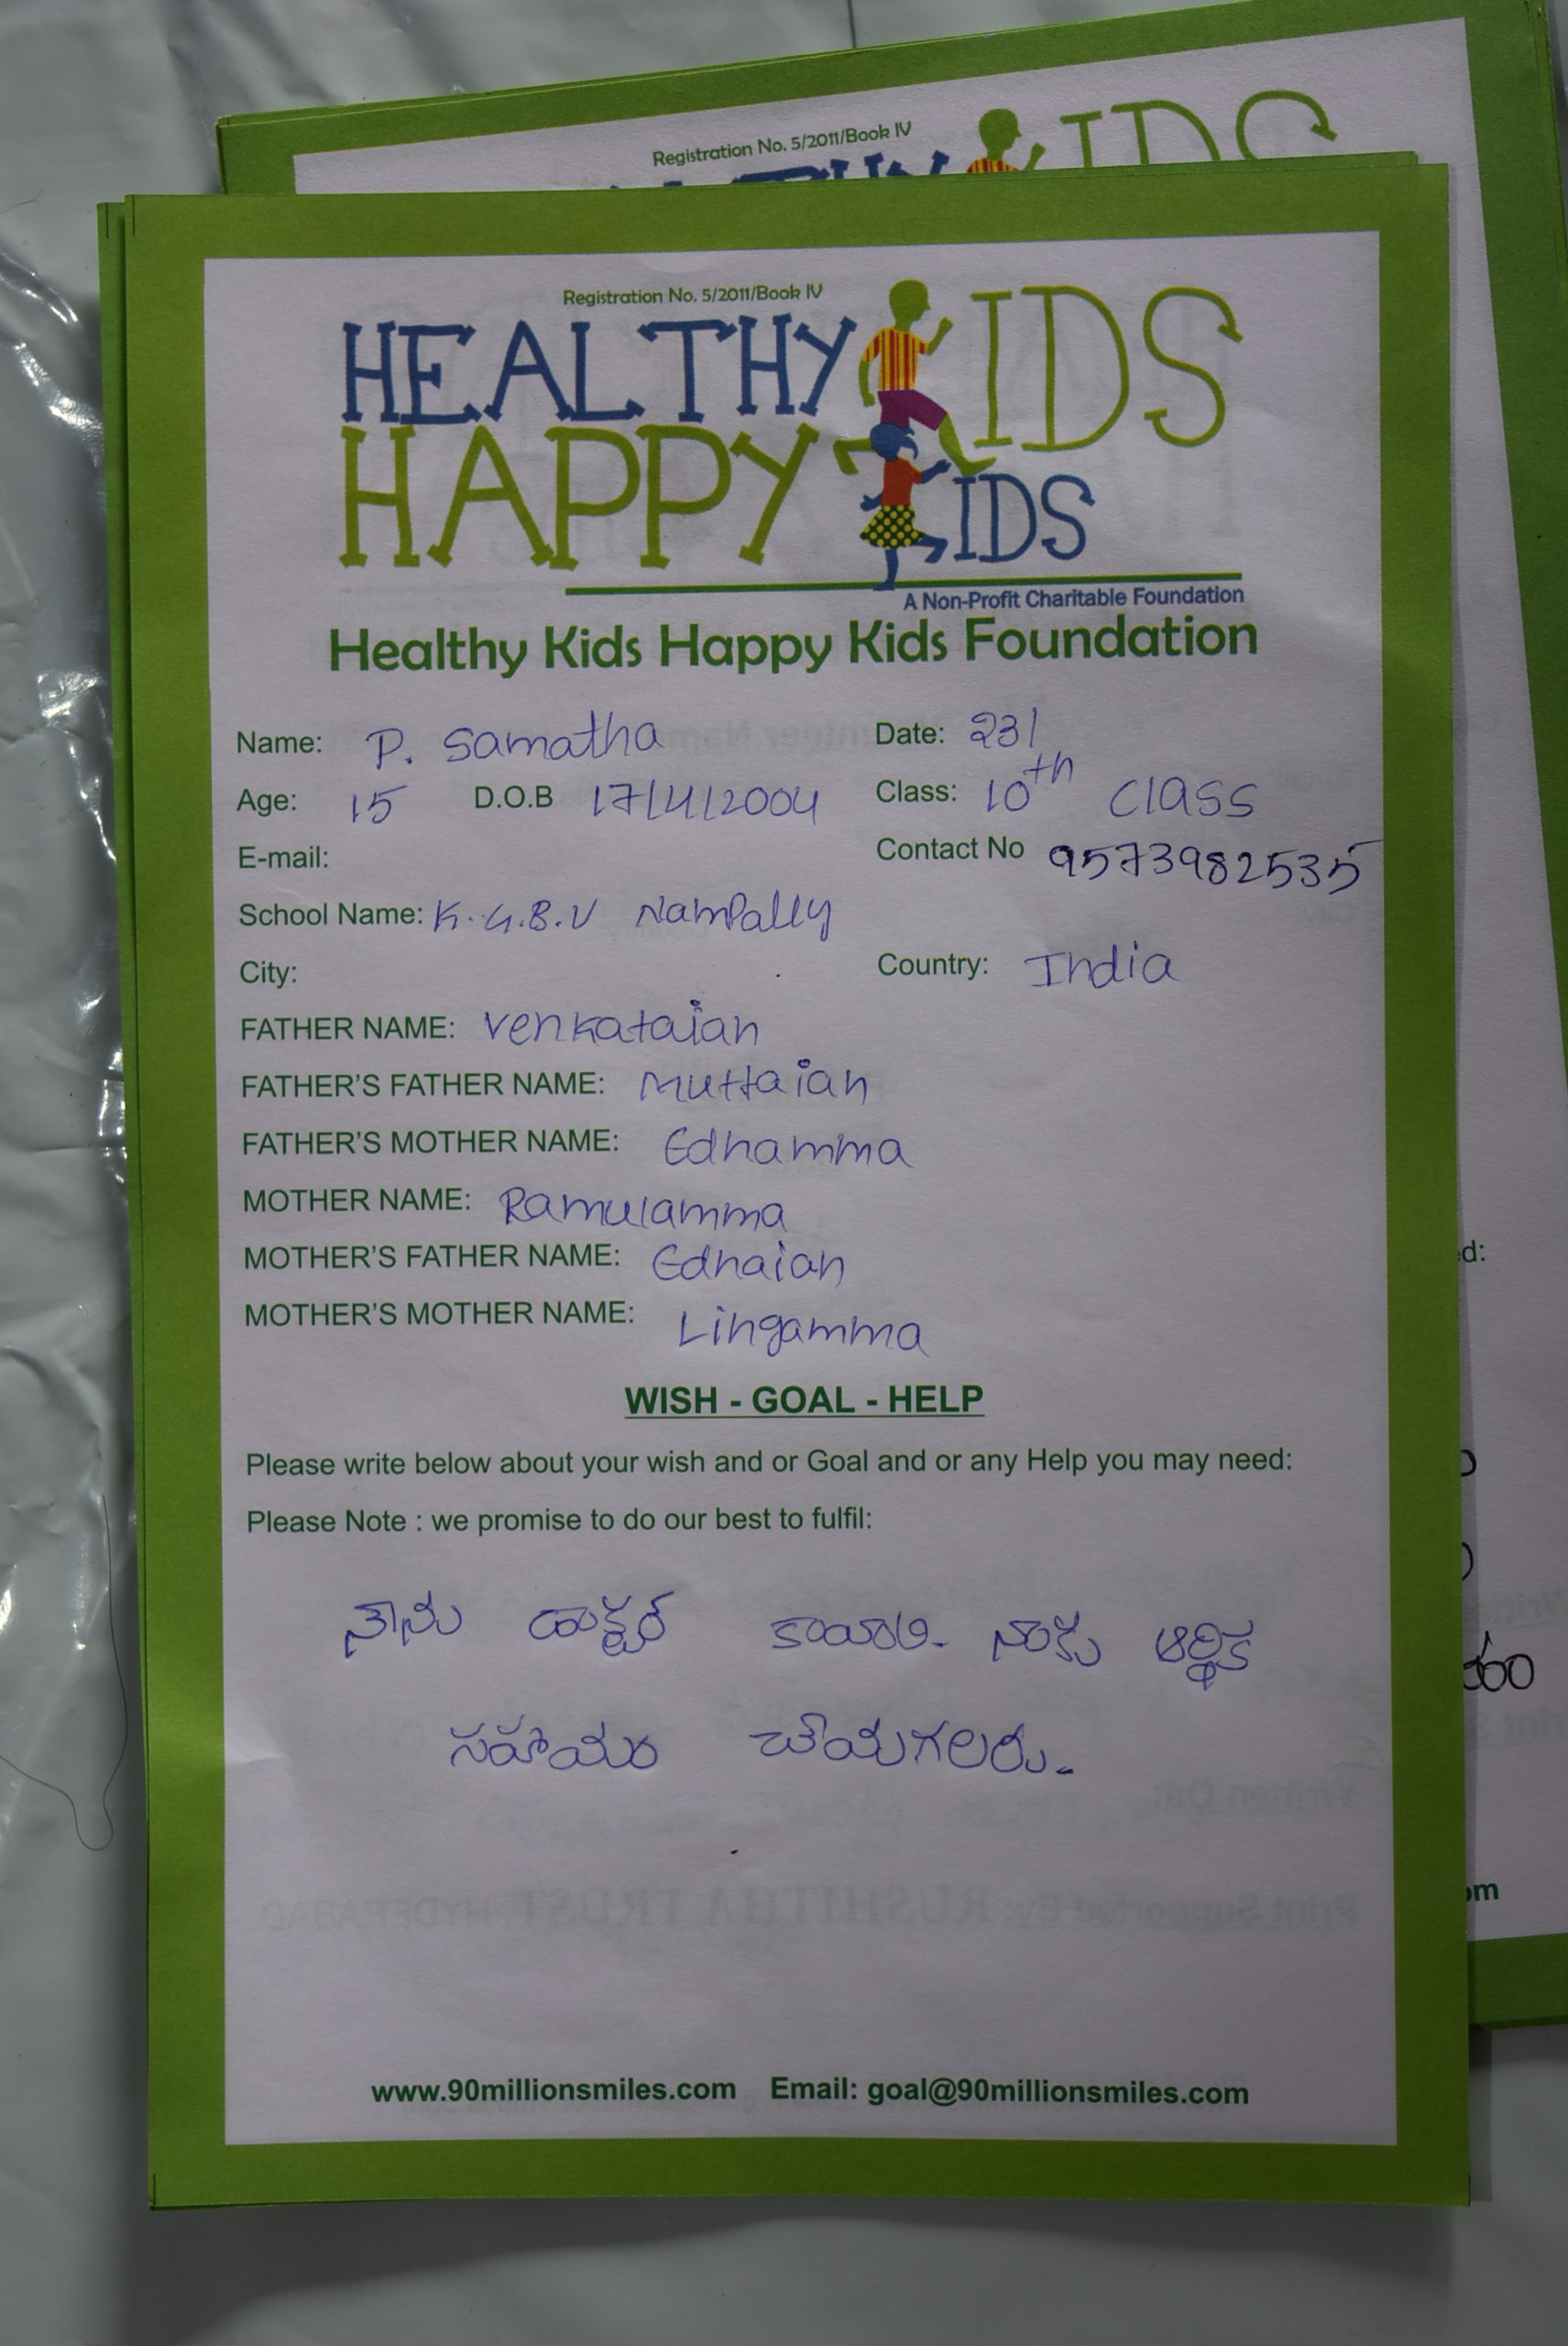 Registration No. 5/2011/Book IV
IDS
Registration No. 5/2011/Book IV
HEALTHY KIDS
HAPPY KIDS
A Non-Profit Charitable Foundation
Healthy Kids Happy Kids Foundation
Name: P. Samatha Date: 23/
Age: 15 D.O.B 17/4/2004 Class: 10th class
E-mail: Contact No 9573982535
School Name: K.G.B.V Nampally
City: Country: India
FATHER NAME: Venkataiah
FATHER'S FATHER NAME: Muttaiah
FATHER'S MOTHER NAME: Edhamma
MOTHER NAME: Ramulamma
MOTHER'S FATHER NAME: Edhaiah
MOTHER'S MOTHER NAME: Lingamma
WISH - GOAL - HELP
Please write below about your wish and or Goal and or any Help you may need:
Please Note : we promise to do our best to fulfil:
నాను డాక్టర్ కావాలి. నాకు ఆర్థిక
సహాయం చేయగలరు.
www.90millionsmiles.com Email: goal@90millionsmiles.com